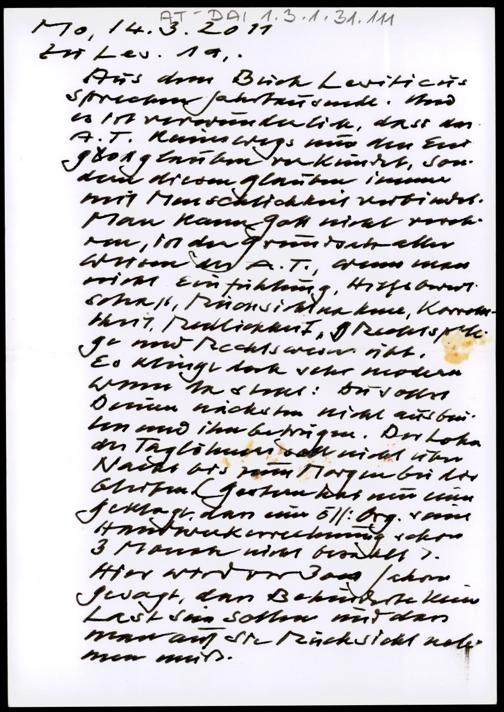 AT-DAI 1.3.1.31.111
Mo, 14.3.2011
Zu Lev. 19,.
Aus dem Buch Leviticus
sprechen Jahrtausende. Und
es ist verwunderlich, dass das
A.T. keineswegs nur den Ein
gottglauben verkündet, son-
dern diesen Glauben immer
mit Menschlichkeit verbindet.
Man kann Gott nicht vereh-
ren, ist der Grundsatz aller
Weisen des A.T., wenn man
nicht Einfühlung, Hilfsbereit
schaft, Rücksichtnahme, Korrekt-
heit, Redlichkeit, Rechtspfle-
ge und Rechtswesen übt.
Es klingt doch sehr modern
wenn da steht: Du sollst
Deinen nächsten nicht ausbeu-
ten und ihn betrügen. Der Lohn
des Taglöhners soll nicht über
Nacht bis zum Morgen bei dir
bleiben (Gestern hat mir einer
geklagt, dass eine öff: Org. seine
Handwerkerrechnung schon
3 Monate nicht bezahlt).
Hier wird vor 3000 Jahren
gesagt, dass Behinderte keine
Last sein sollen und dass
man auf sie Rücksicht neh-
men muß.